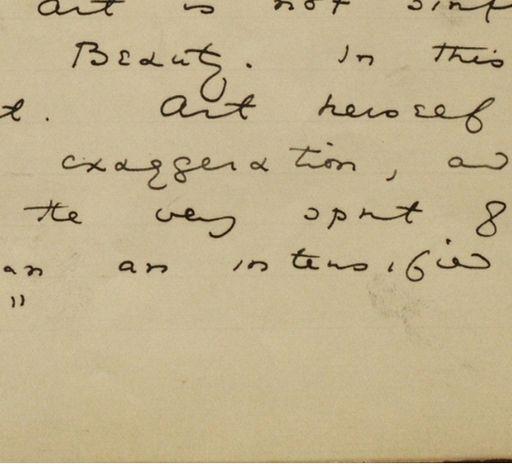 art is not simp
Beauty. In this
t. Art herself
exaggeration, and
the very spirit of
an an intensified
"